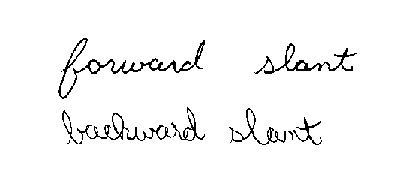 forward slant
backward slant